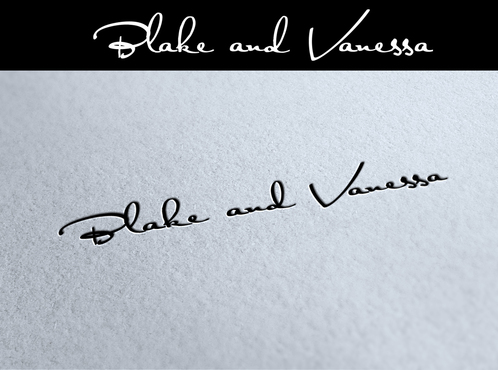 Blake and Vanessa
Blake and Vanessa